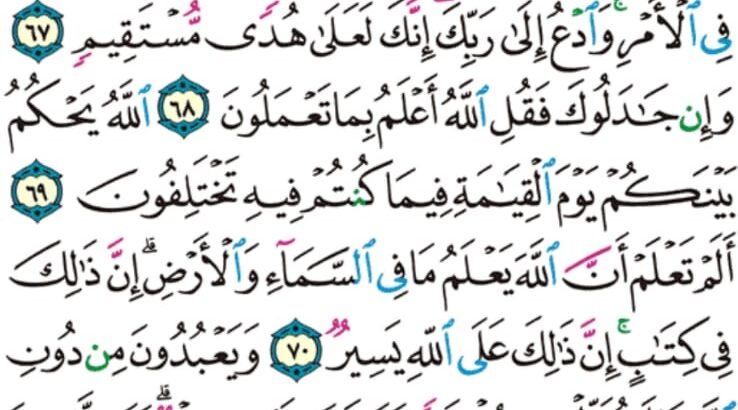 فِي ٱلۡأَمۡرِۚ وَٱدۡعُ إِلَىٰ رَبِّكَۖ إِنَّكَ لَعَلَىٰ هُدٗى مُّسۡتَقِيمٖ ٦٧
وَإِن جَٰدَلُوكَ فَقُلِ ٱللَّهُ أَعۡلَمُ بِمَا تَعۡمَلُونَ ٦٨ ٱللَّهُ يَحۡكُمُ
بَيۡنَكُمۡ يَوۡمَ ٱلۡقِيَٰمَةِ فِيمَا كُنتُمۡ فِيهِ تَخۡتَلِفُونَ ٦٩
أَلَمۡ تَعۡلَمۡ أَنَّ ٱللَّهَ يَعۡلَمُ مَا فِي ٱلسَّمَآءِ وَٱلۡأَرۡضِۚ إِنَّ ذَٰلِكَ
فِي كِتَٰبٍۚ إِنَّ ذَٰلِكَ عَلَى ٱللَّهِ يَسِيرٞ ٧٠ وَيَعۡبُدُونَ مِن دُونِ